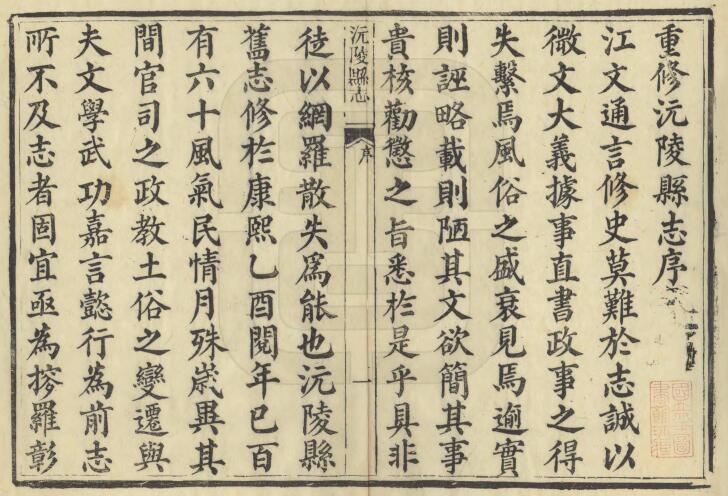 重修沅陵縣志序
江文通言修史莫難於志誠以
微文大義據事直書政事之得
失繫焉風俗之盛衰見焉逾實
則誣略載則陋其文欲簡其事
貴核勸懲之旨悉於是乎具非
沅陵縣志
序
一
徒以網羅散失爲能也沅陵縣
舊志修於康熙乙酉閱年已百
有六十風氣民情月殊歲異其
間官司之政教土俗之變遷與
夫文學武功嘉言懿行為前志
所不及志者固宜亟為搜羅彰